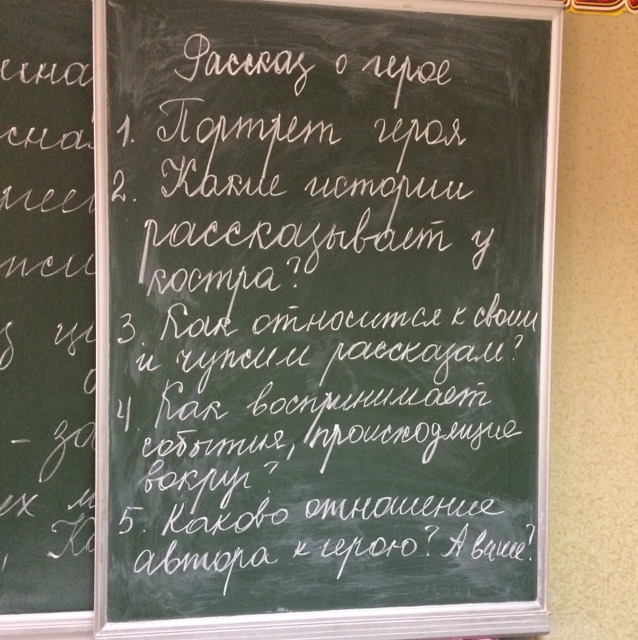 Рассказ о герое
1. Портрет героя
2. Какие истории
рассказывает у
костра?
3. Как относится к своим
и чужим рассказам?
4. Как воспринимает
события, происходящие
вокруг?
5. Каково отношение
автора к герою? А ваше?